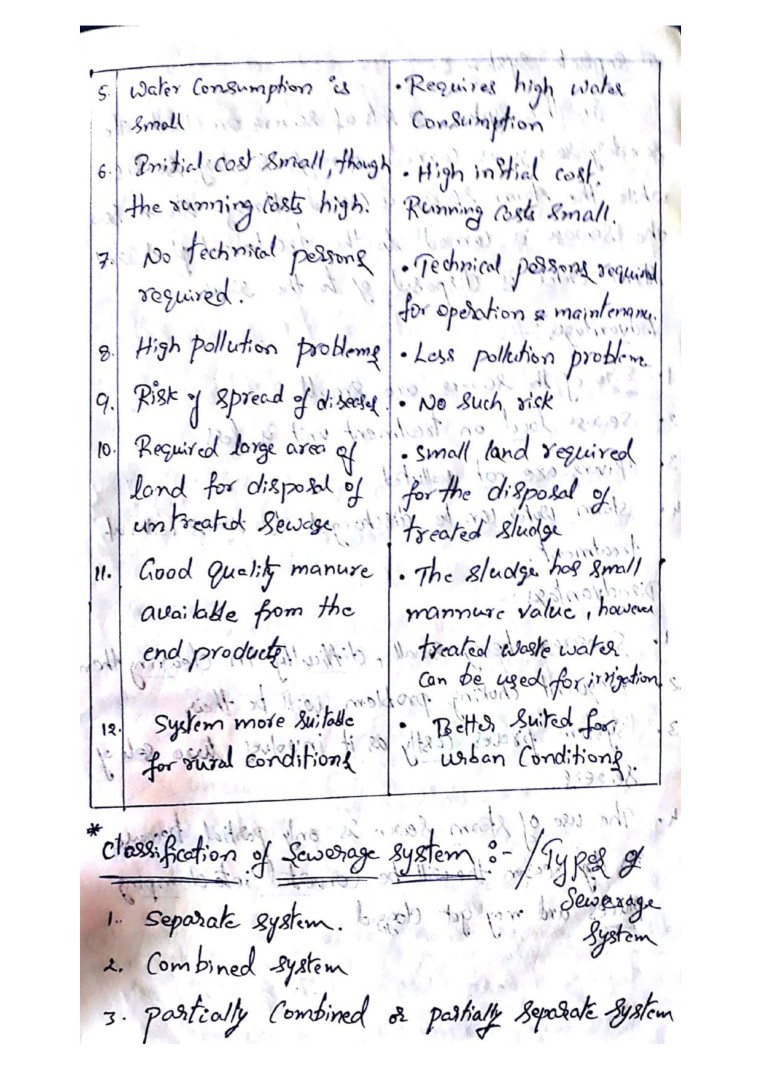 5. Water Consumption is
small
• Requires high water
Consumption
6. Initial cost small, though
the running costs high.
• High initial cost.
Running costs small.
7. No technical persons
required.
• Technical persons required
for operation & maintenance.
8. High pollution problems
• Less pollution problem
9. Risk of spread of diseases
• No such risk
10. Required large area of
land for disposal of
untreated sewage
• small land required
for the disposal of
treated sludge
11. Good quality manure
available from the
end products
• The sludge has small
mannure value, however
treated waste water
can be used for irrigation
12. System more suitable
for rural conditions
• Better suited for
urban Conditions.
* Classification of Sewerage system :- / Types of
Sewerage
System
1. Separate system.
2. Combined system
3. Partially Combined or partially separate system